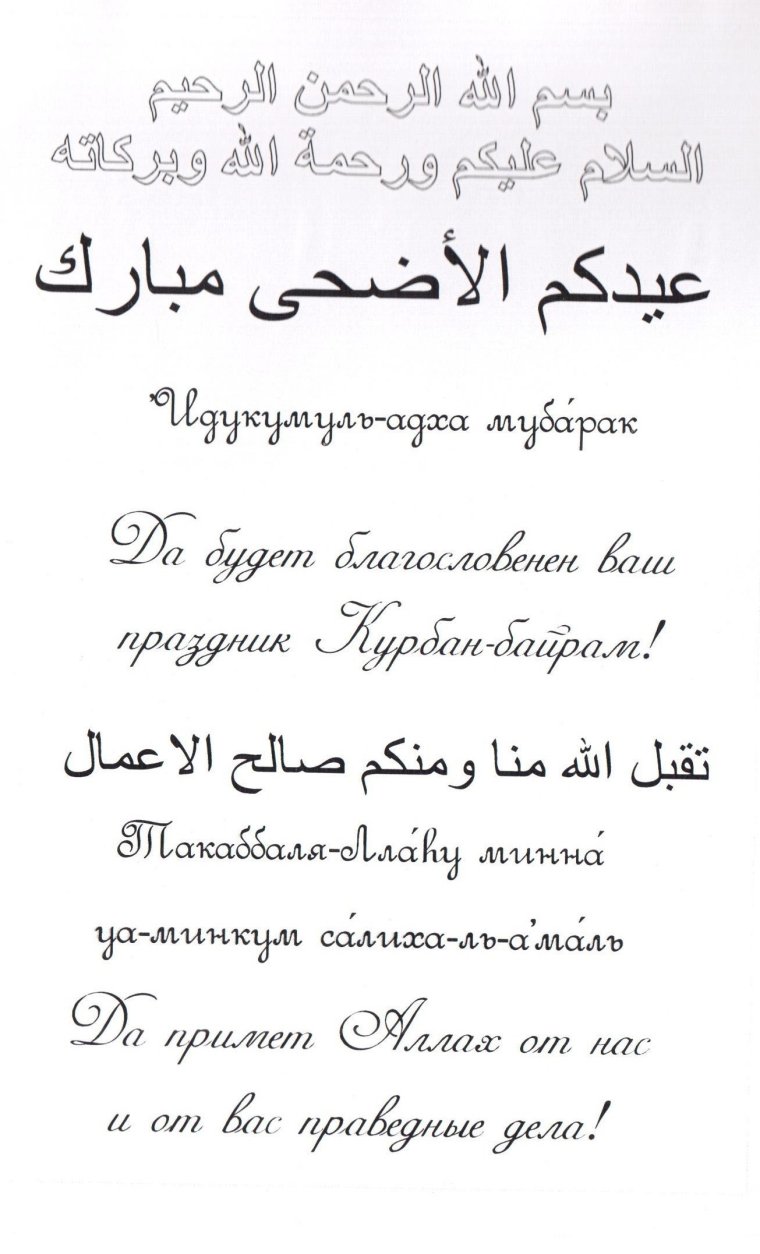 بسم الله الرحمن الرحيم
السلام عليكم ورحمة الله وبركاته
عيدكم الأضحى مبارك
‘Идукумуль-адха муба́рак
Да будет благословенен ваш
праздник Курбан-байрам!
تقبل الله منا ومنكم صالح الاعمال
Такаббаля-Лла́hу минна́
уа-минкум са́лиха-ль-а’ма́ль
Да примет Аллах от нас
и от вас праведные дела!